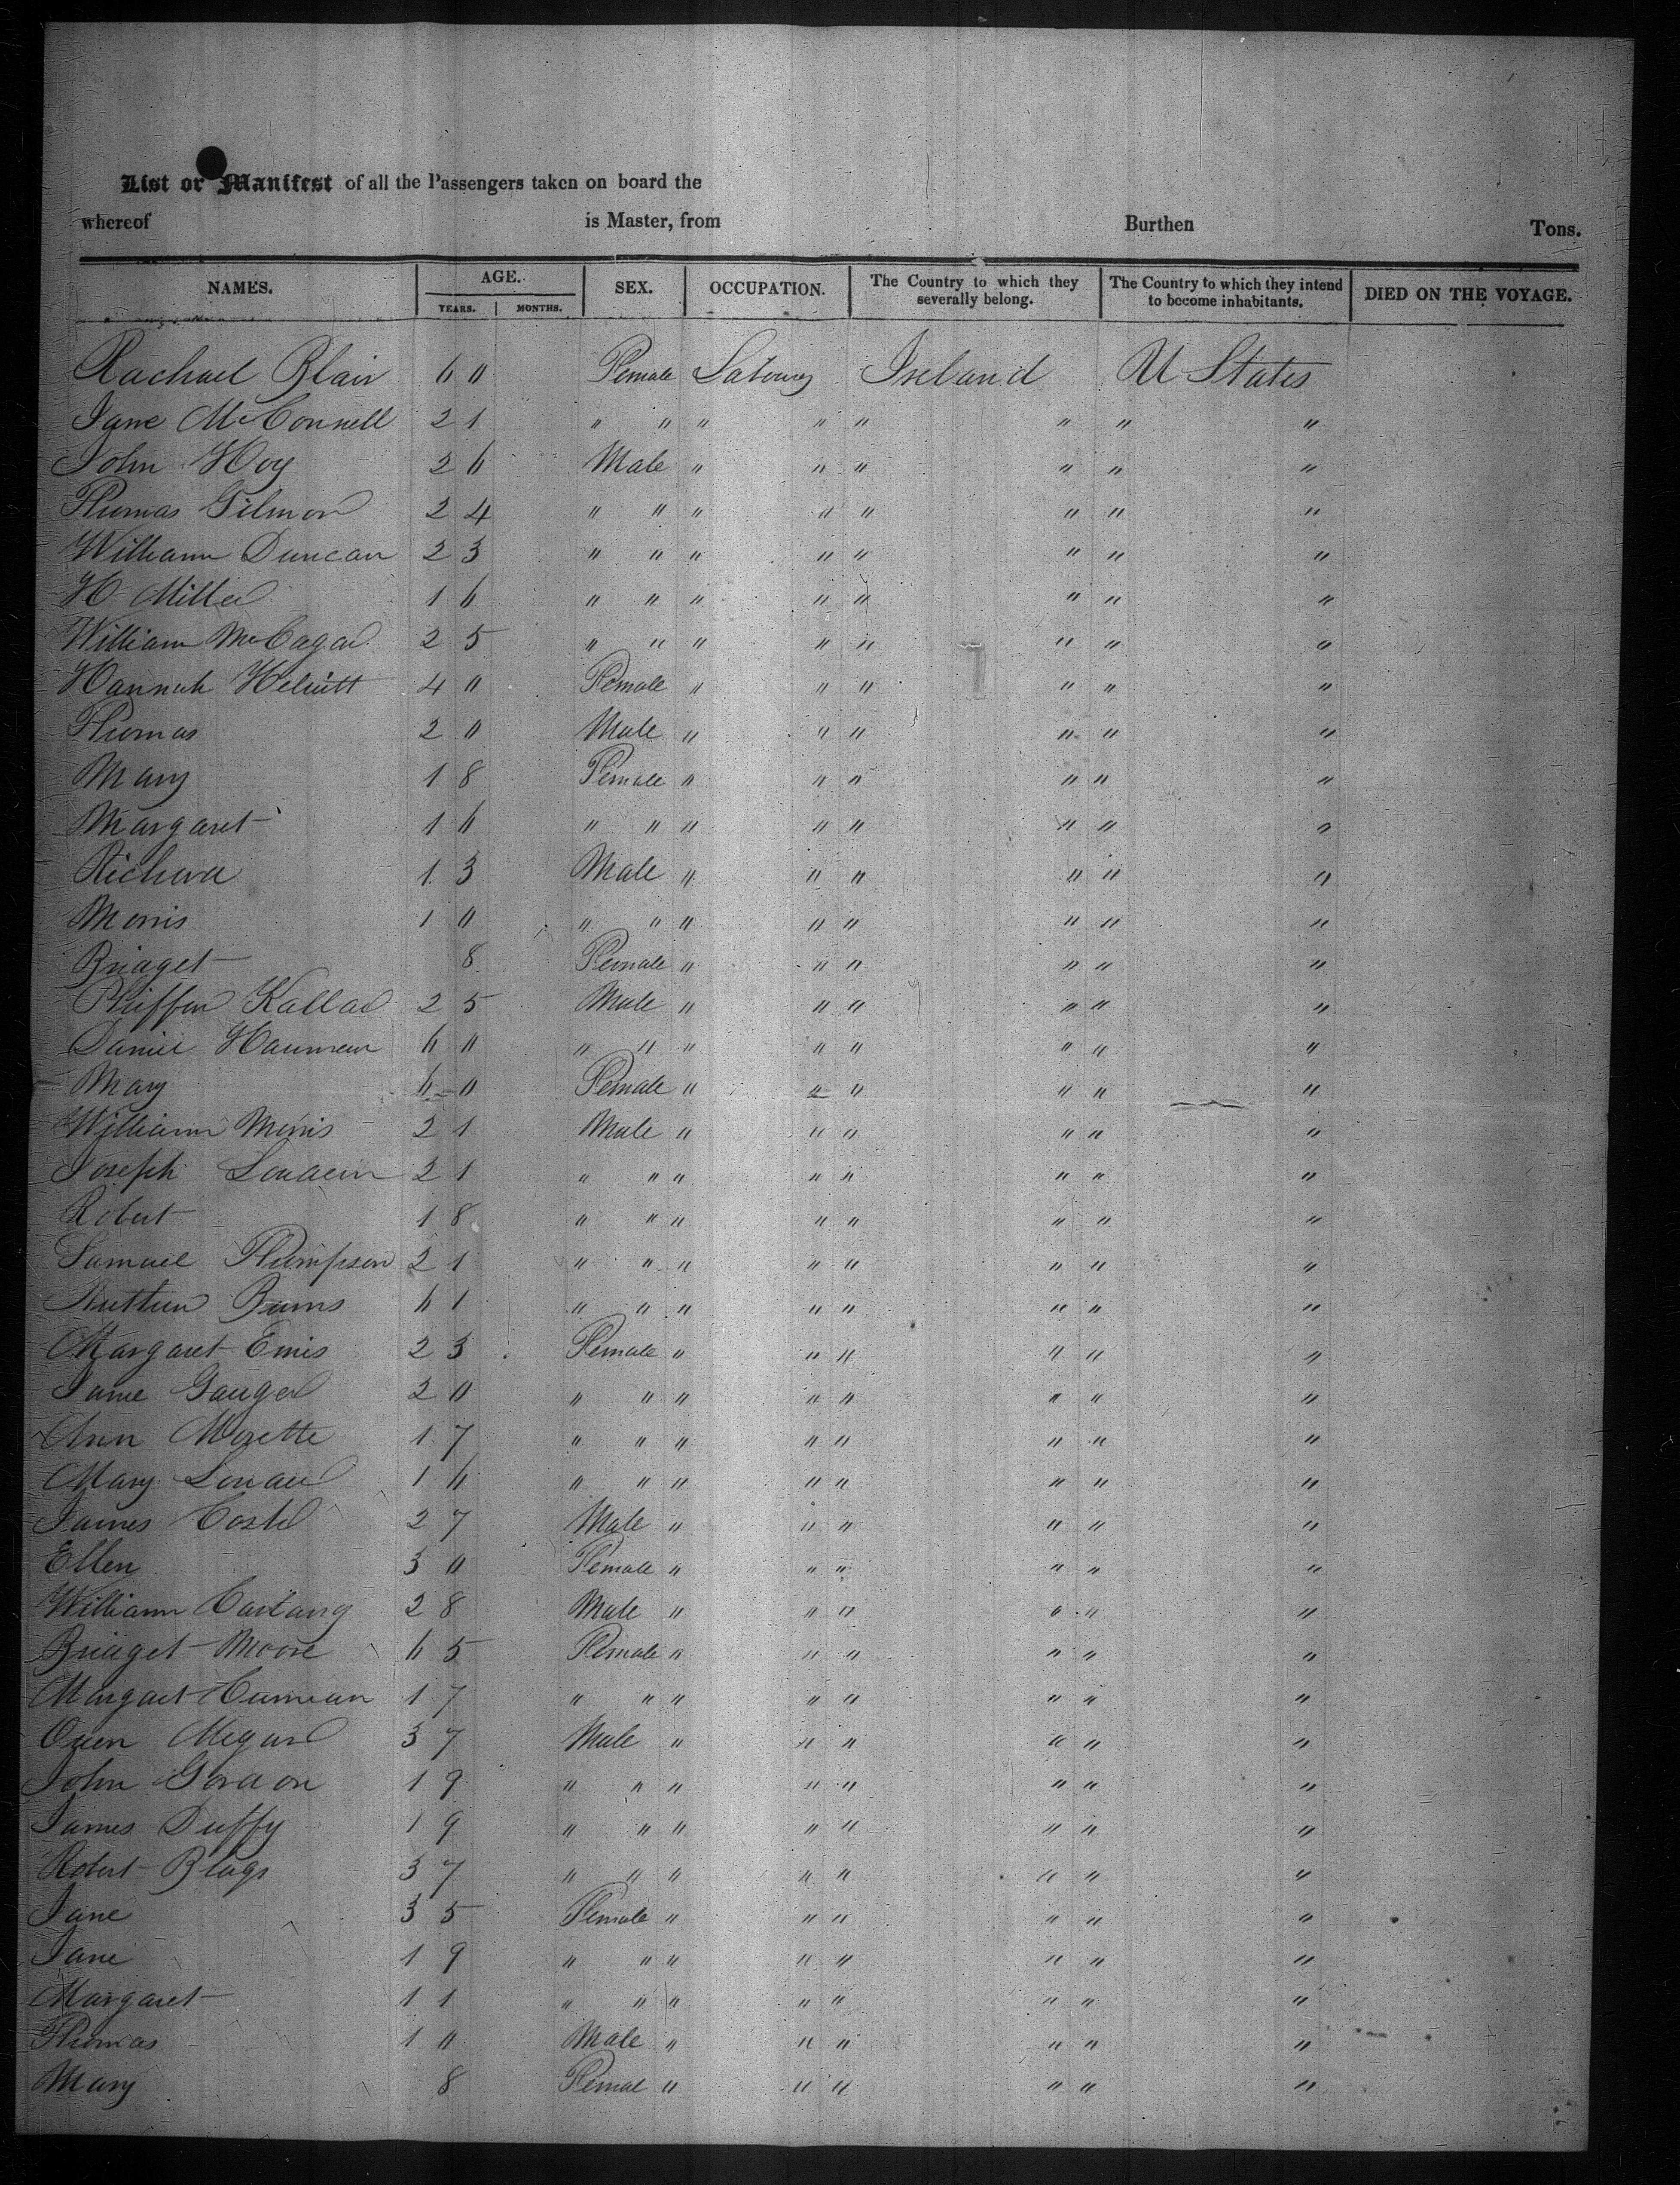 List or Manifest of all the Passengers taken on board the
whereof is Master, from Burthen Tons.
NAMES. AGE. SEX. OCCUPATION. The Country to which they severally belong. The Country to which they intend to become inhabitants. DIED ON THE VOYAGE.
YEARS. MONTHS.
Rachael Blair 60 Female Ireland U States
Jane McConnell 21 " " " " " " " "
John Hoy 26 Male " " " " " "
Thomas Gilmor 24 " " " " " " " "
William Duncan 23 " " " " " " " "
H Miller 16 " " " " " " " "
William 25 " " " " " " " "
Hannah 40 Female " " " " " "
Thomas 20 Male " " " " " "
Mary 18 Female " " " " " "
Margaret 16 " " " " " " " "
Richard 13 Male " " " " " "
Morris 10 " " " " " " " "
Bridget 8 Female " " " " " "
25 Male " " " " " "
60 " " " " " " " "
Mary 60 Female " " " " " "
William 21 Male " " " " " "
Joseph 21 " " " " " " " "
Robert 18 " " " " " " " "
Samuel Thompson 21 " " " " " " " "
Burns 61 " " " " " " " "
Margaret 23 Female " " " " " "
Jane 20 " " " " " " " "
Ann 17 " " " " " " " "
Mary 16 " " " " " " " "
James 27 Male " " " " " "
Ellen 30 Female " " " " " "
William 28 Male " " " " " "
Bridget Moore 65 Female " " " " " "
Margaret 17 " " " " " " " "
Owen 37 Male " " " " " "
John Gordon 19 " " " " " " " "
James Duffy 19 " " " " " " " "
Robert 37 " " " " " " " "
Jane 35 Female " " " " " "
Jane 19 " " " " " " " "
Margaret 11 " " " " " " " "
Thomas 10 Male " " " " " "
Mary 8 Femal " " " " " "